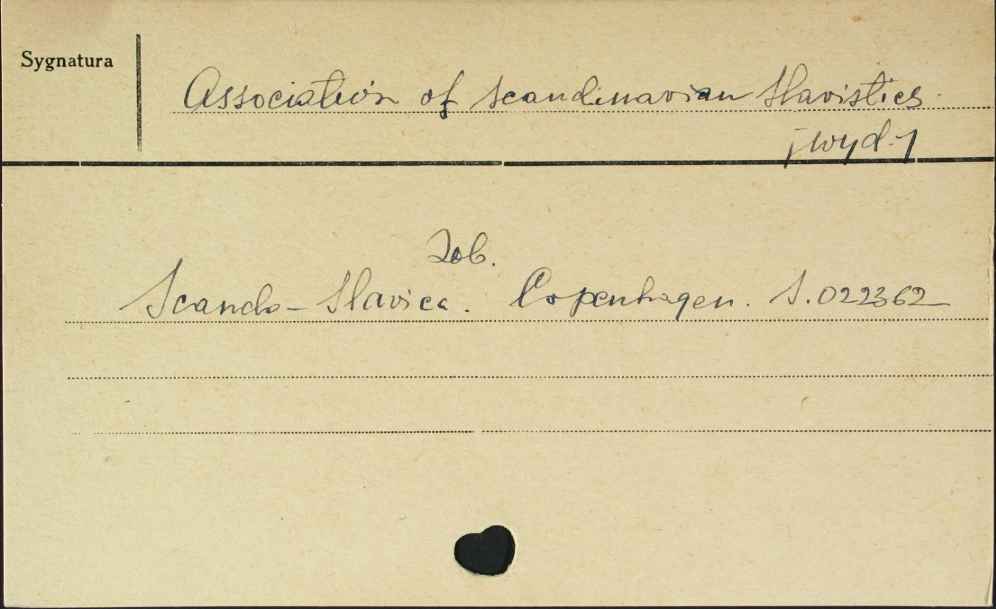 Sygnatura
Association of Scandinavian Slavistics
[wyd.]
Zob.
Scando-Slavica. Copenhagen. S.022362